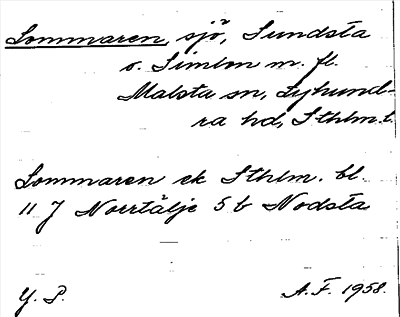 Lommaren, sjö, Sundsta
o. Simlon m. fl.
Malsta sn, Lyhund-
ra hd, Sthlm. l.
Lommaren ek Sthlm. bl.
11 J Norrtälje 5 b Nodsta
Y. P. A. F. 1958.